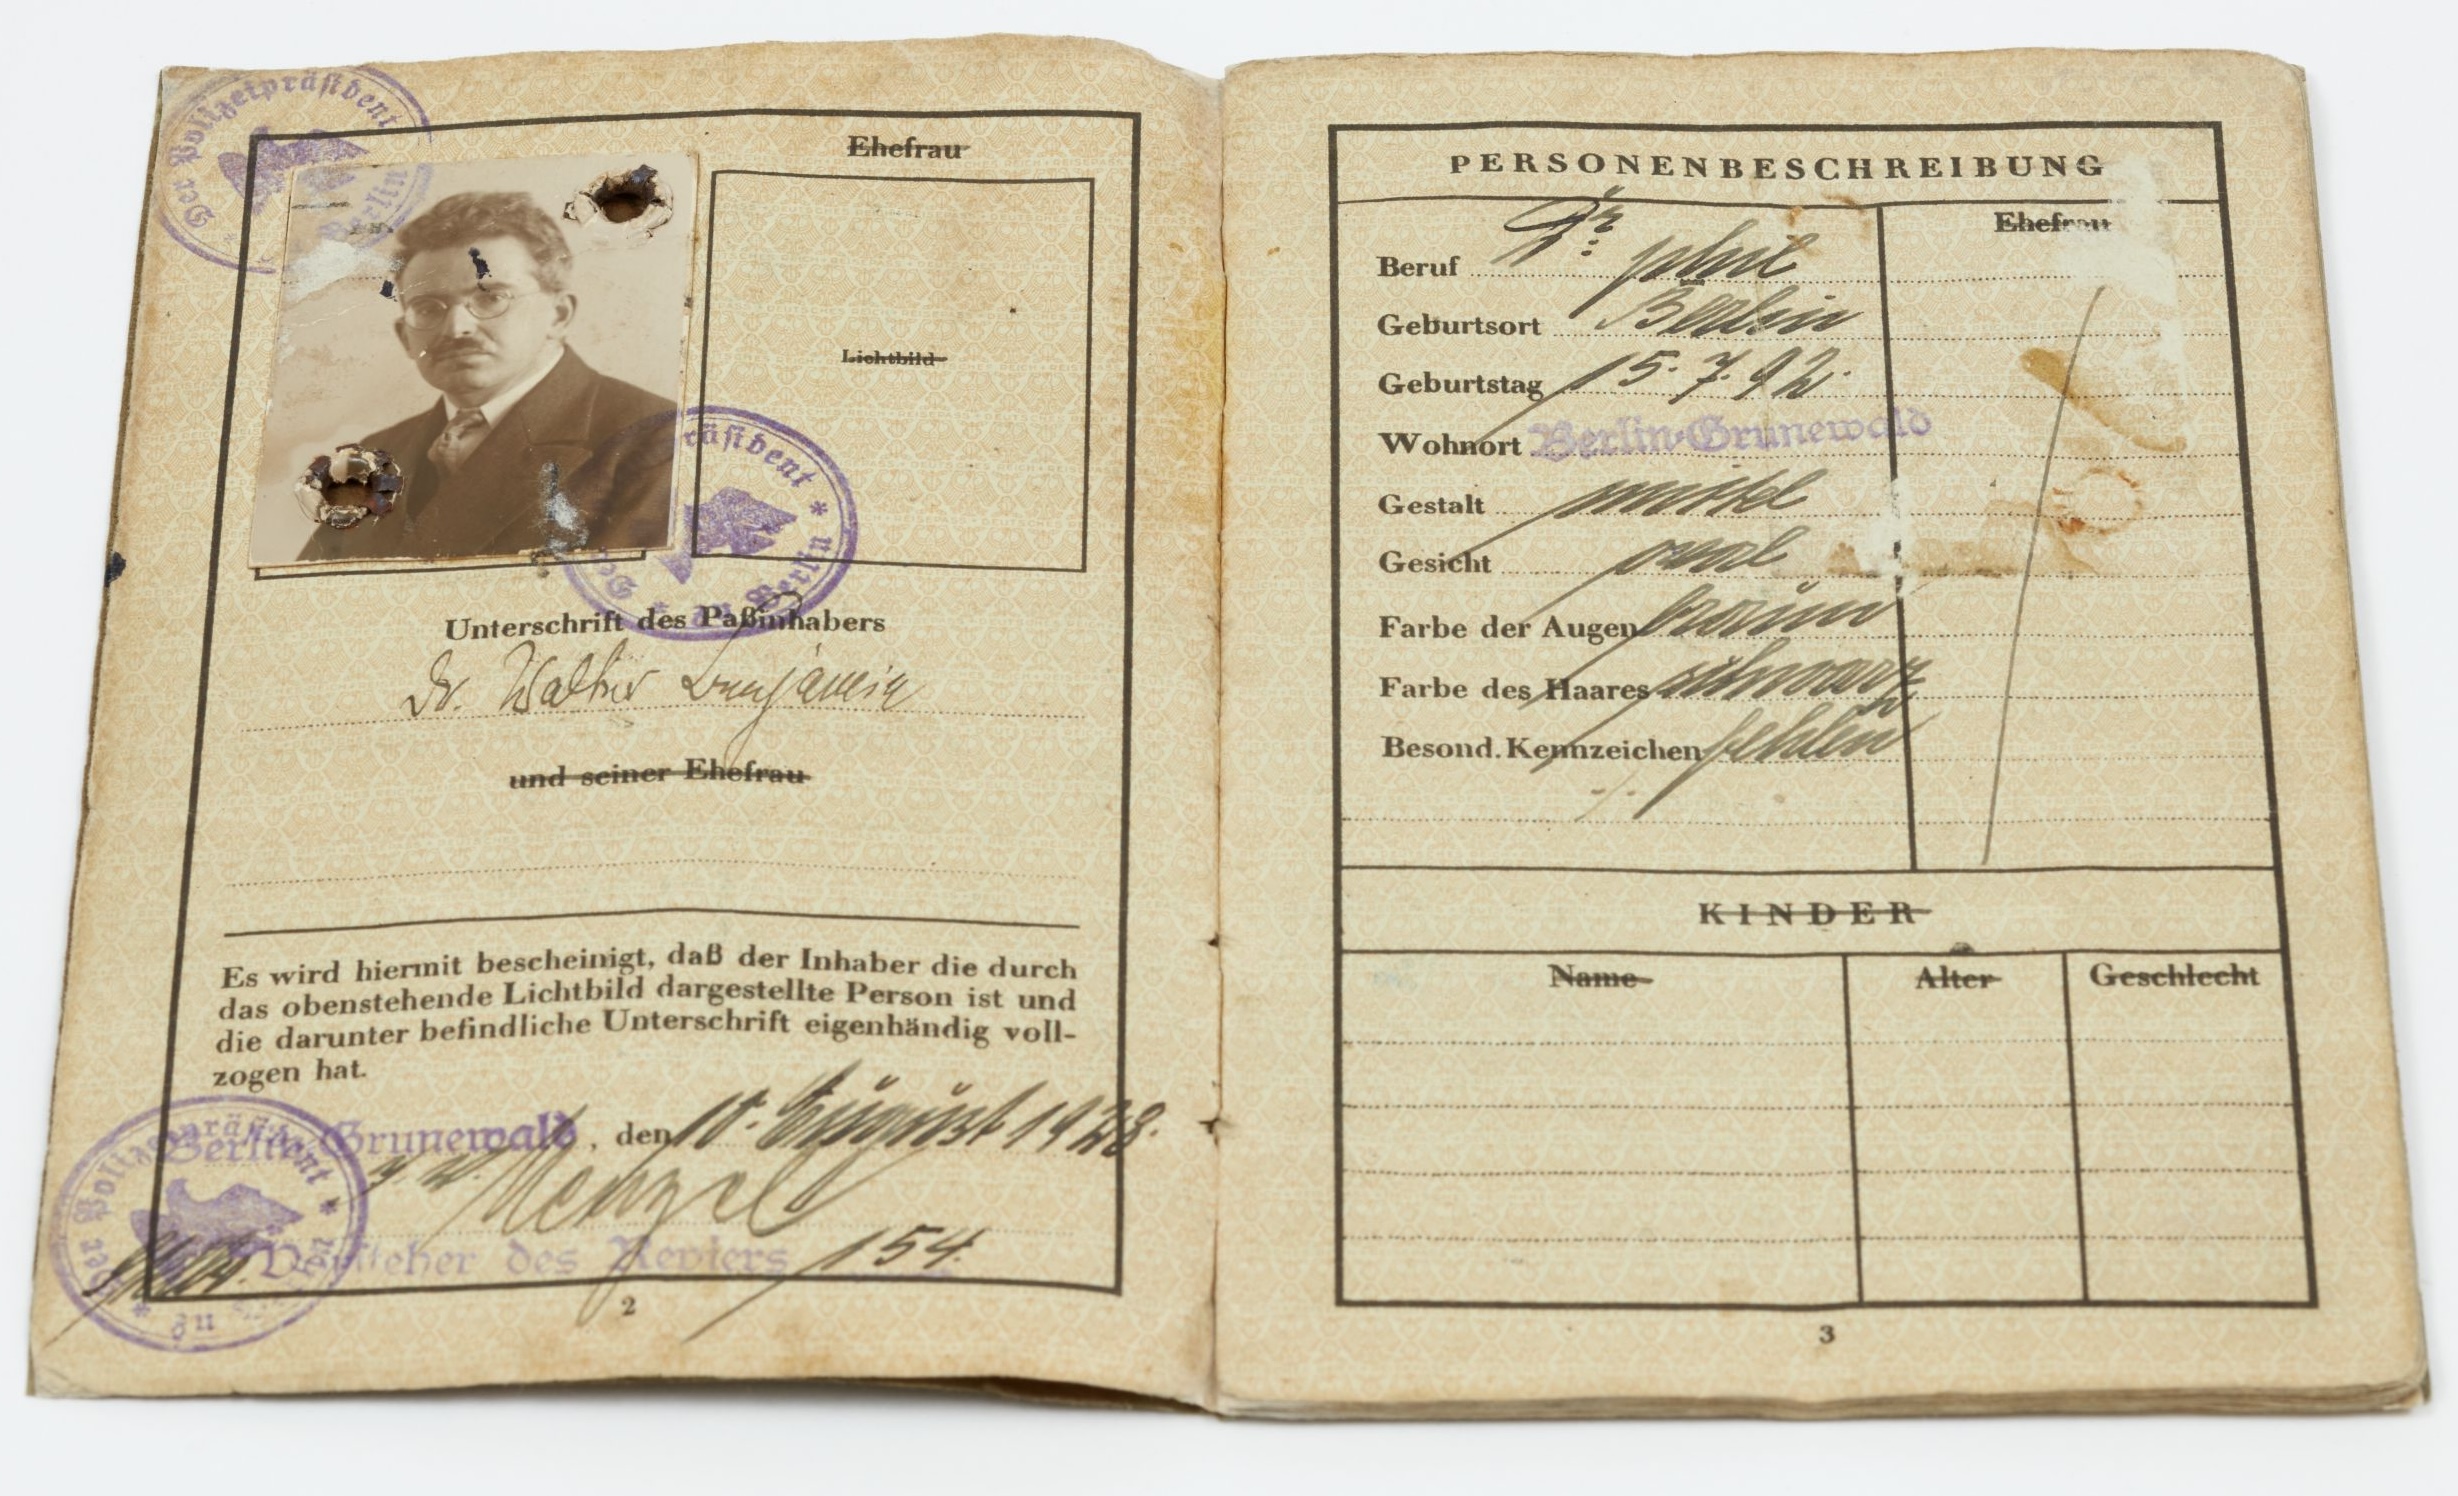 Der Polizeipräsident
Berlin
Ehefrau
Lichtbild
präsident * Berlin
Unterschrift des Paßinhabers
Dr. Walter Benjamin
und seiner Ehefrau
Es wird hiermit bescheinigt, daß der Inhaber die durch
das obenstehende Lichtbild dargestellte Person ist und
die darunter befindliche Unterschrift eigenhändig voll-
zogen hat.
Der Polizeipräsident * in Berlin *
Berlin-Grunewald, den 10. August 1928.
Vorsteher des Reviers 154.
2
PERSONENBESCHREIBUNG
Ehefrau
Beruf Dr: phil
Geburtsort Berlin
Geburtstag 15. 7. 92.
Wohnort Berlin-Grunewald
Gestalt mittel
Gesicht oval
Farbe der Augen braun
Farbe des Haares schwarz
Besond. Kennzeichen fehlen
KINDER
Name Alter Geschlecht
3